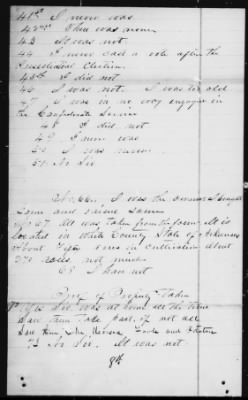 41st I never was
42nd There was none
43 It was not
44 I never cast a vote after the
Presidential Election
45th I did not
46 I was not. I was too old
47 I was in no way engaged in
the Confederate Service
48 I did not
49 I never was
50 I was never
51 No Sir
No 66. I was the owner I bought
some and raised some
No 67 All was taken from the farm. It is
located in White County State of Arkansas
About acres in cultivation about
270 acres, not much
68 I have not
Proof of Property Taken
Yes Sir, was at home all the time
Saw them Take part of not all
Saw them take Horses
72 No Sir. It was not
8th